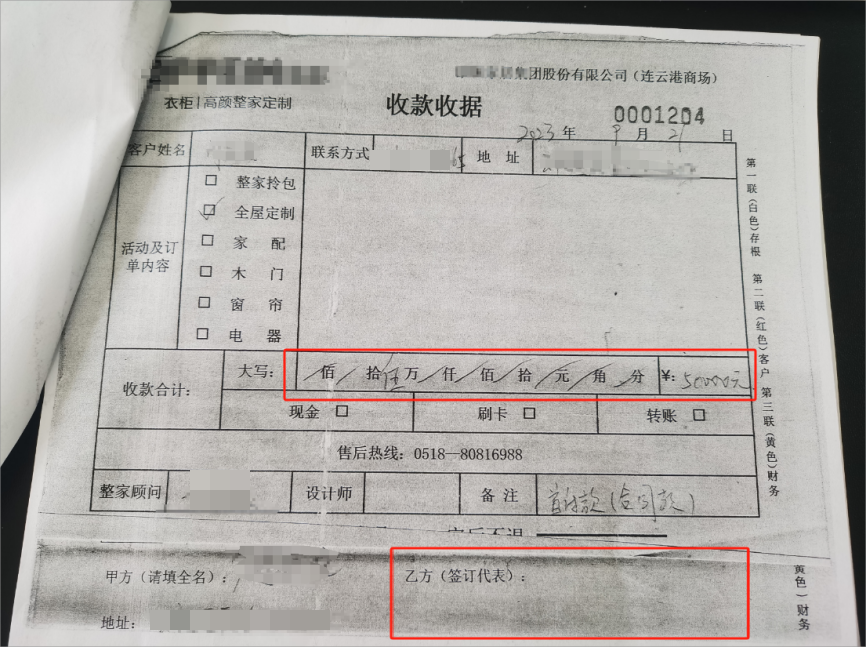 家居集团股份有限公司（连云港商场）
衣柜|高颜整家定制
收款收据
0001204
2023年9月21日
客户姓名 联系方式 地 址
活动及订单内容
整家拎包
全屋定制
家 配
木 门
窗 帘
电 器
收款合计：
大写： / 佰 / 拾 伍 万 / 仟 / 佰 / 拾 / 元 / 角 / 分 ¥：50000元
现金 刷卡 转账
售后热线：0518—80816988
整家顾问 设计师 备 注 首付款（合同款）
第一联（白色）存根 第二联（红色）客户 第三联（黄色）财务
甲方（请填全名）： 乙方（签订代表）：
地址：
黄色）财务